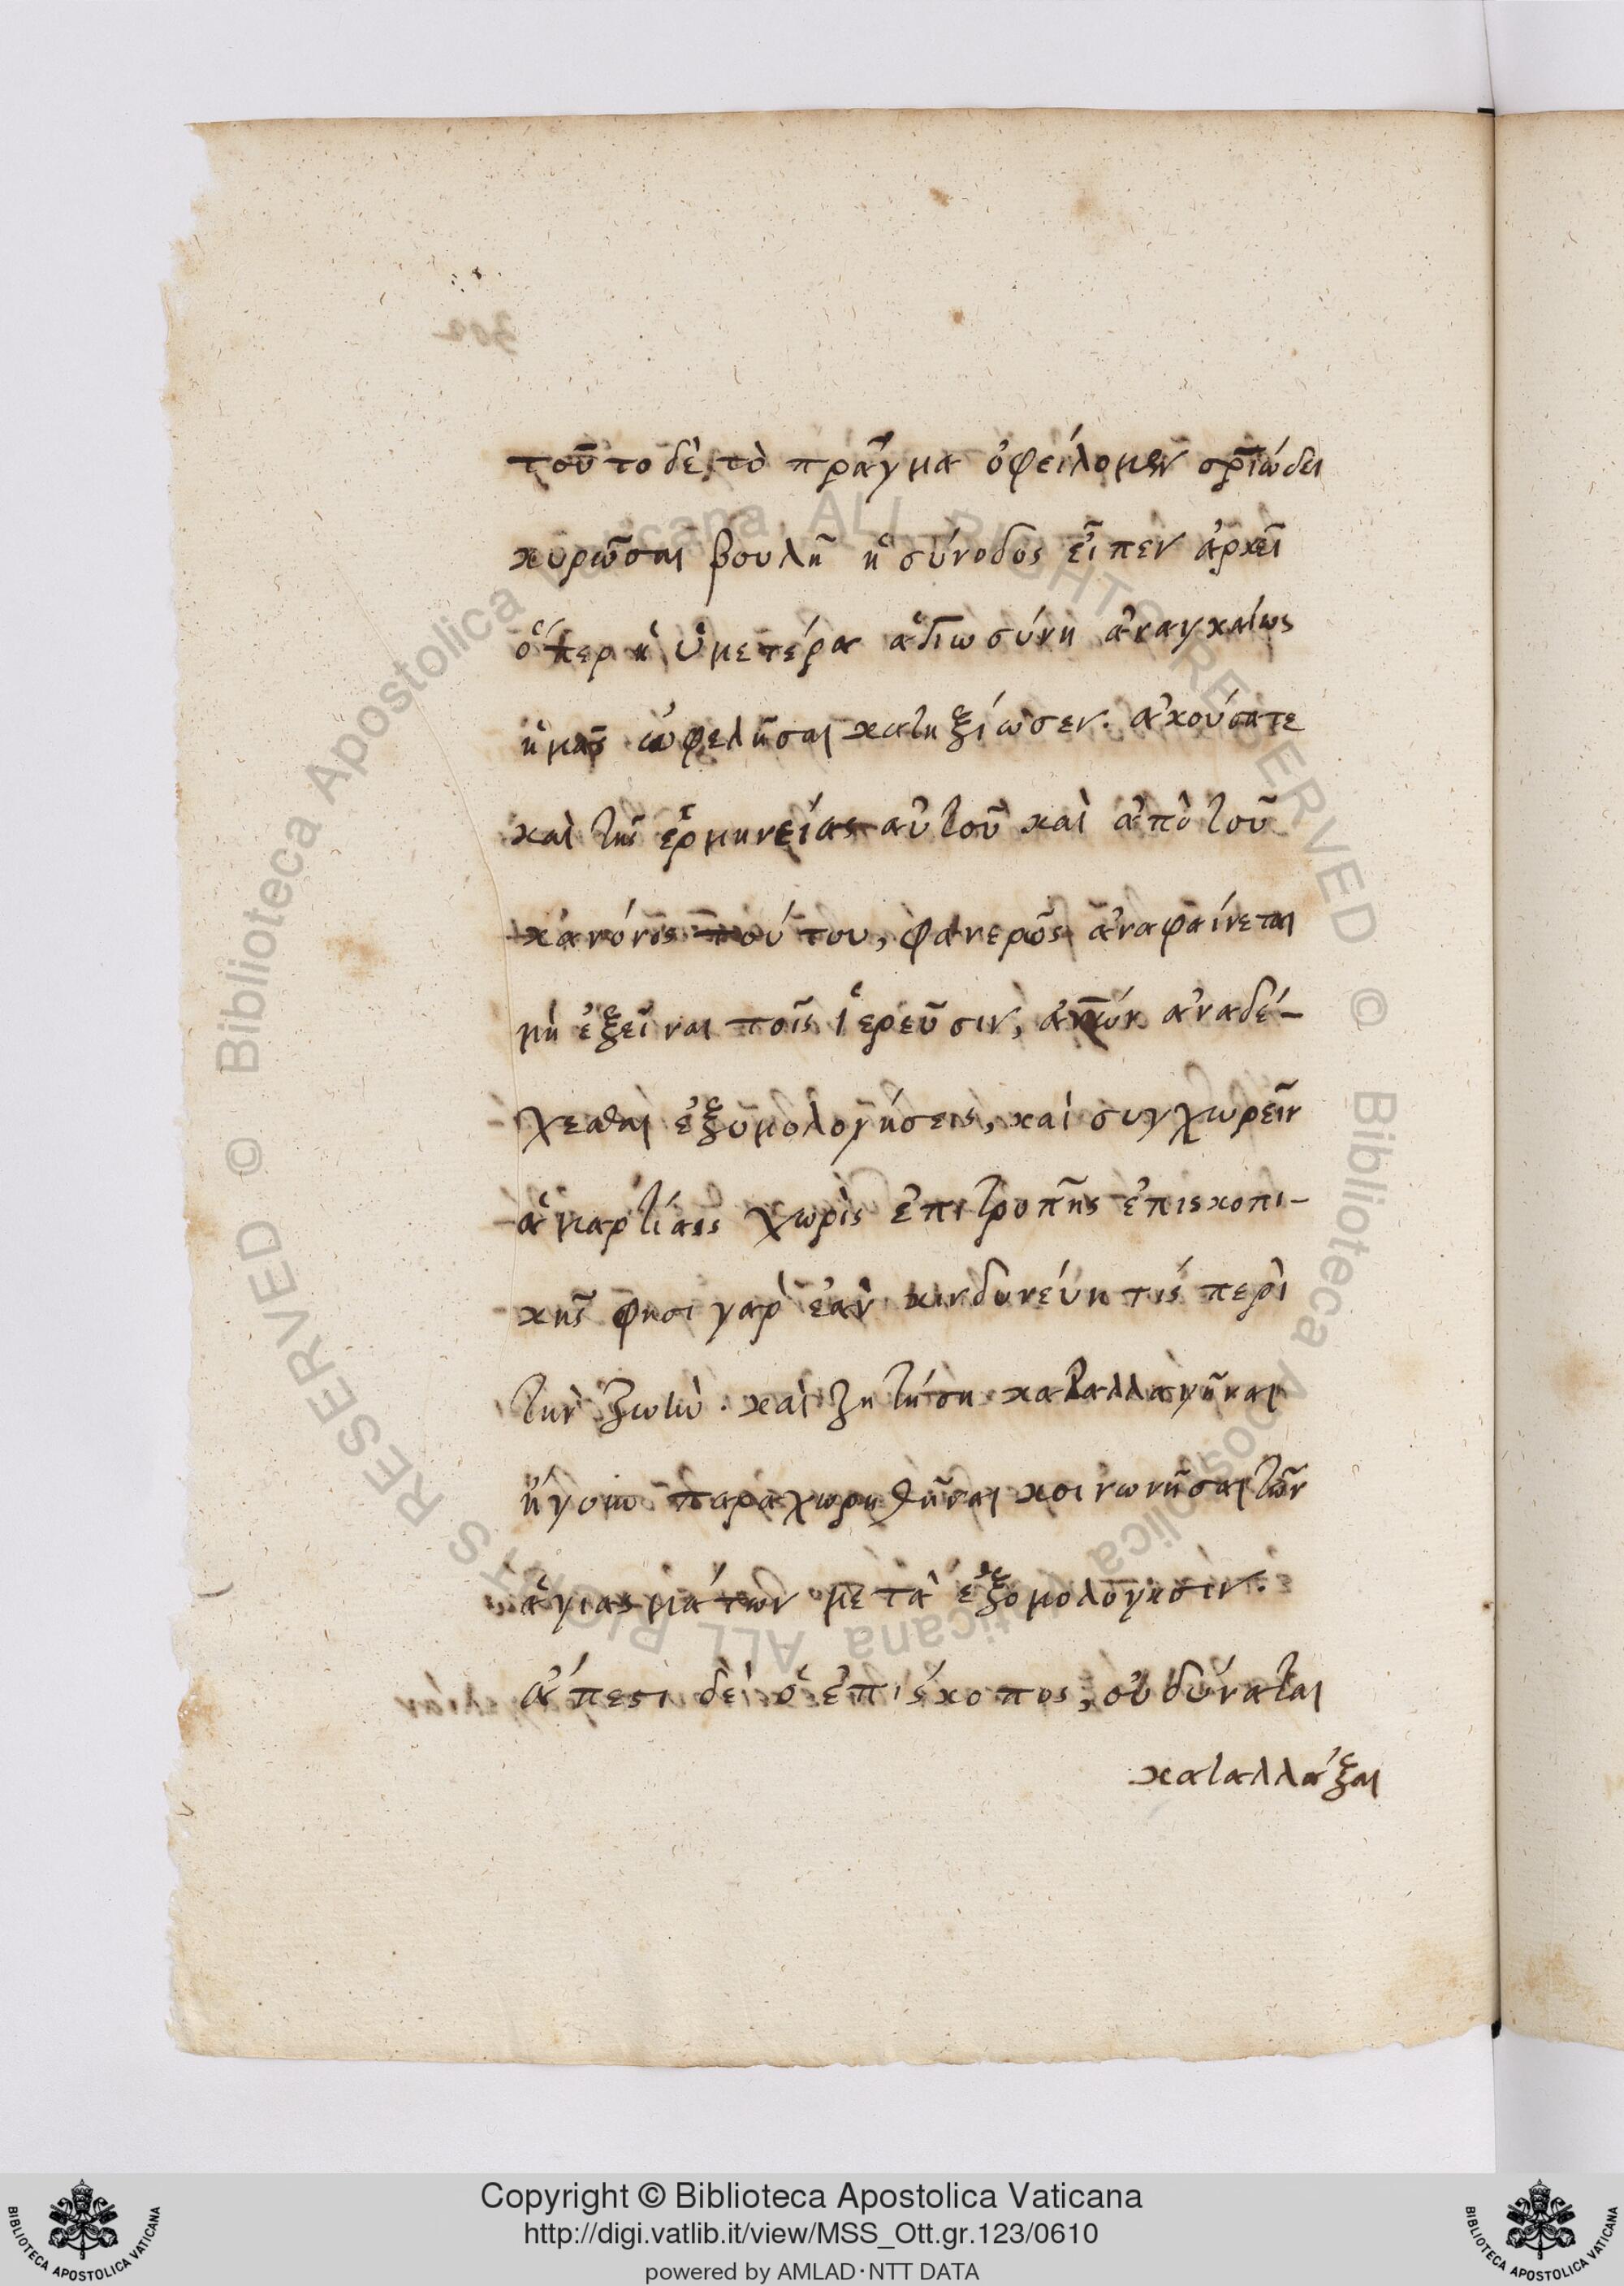 τοῦτο δὲ τὸ πρᾶγμα ὀφείλομεν ὁρϊώδει
κυρῶσαι βουλῆ ἡ σύνοδος εἶπεν ἀρκεῖ
ὅπερ ἡ ὑμετέρα ἁγιωσύνη ἀναγκαίως
ἡμᾶς ὠφελῆσαι κατηξίωσεν. ἀκούσατε
καὶ τῆς ἑρμηνείας αὐτοῦ καὶ ἀπὸ τοῦ
κανόνος τούτου, φανερῶς ἀναφαίνεται
μὴ ἐξεῖναι τοῖς ἱερεῦσιν, ἀναδέ-
χεσθαι ἐξομολογήσεις, καὶ συγχωρεῖν
ἁμαρτίας χωρὶς ἐπιτροπῆς ἐπισκοπι-
κῆς φησι γαρ ἐὰν κινδυνεύη τις περὶ
τὴν ζωὴν. καὶ ζητήση καταλλαγῆναι
ἤγουν παραχωρηθῆναι κοινωνῆσαι τῶν
ἁγιασμάτων μετὰ ἐξομολόγησιν.
ἄπεστι δὲ ὁ ἐπίσκοπος, οὐ δύναται
καταλλάξαι
© Biblioteca Apostolica Vaticana ALL RIGHTS RESERVED © Biblioteca Apostolica Vaticana ALL RIGHTS RESERVED
Copyright © Biblioteca Apostolica Vaticana
http://digi.vatlib.it/view/MSS_Ott.gr.123/0610
powered by AMLAD·NTT DATA
BIBLIOTECA APOSTOLICA VATICANA
BIBLIOTECA APOSTOLICA VATICANA